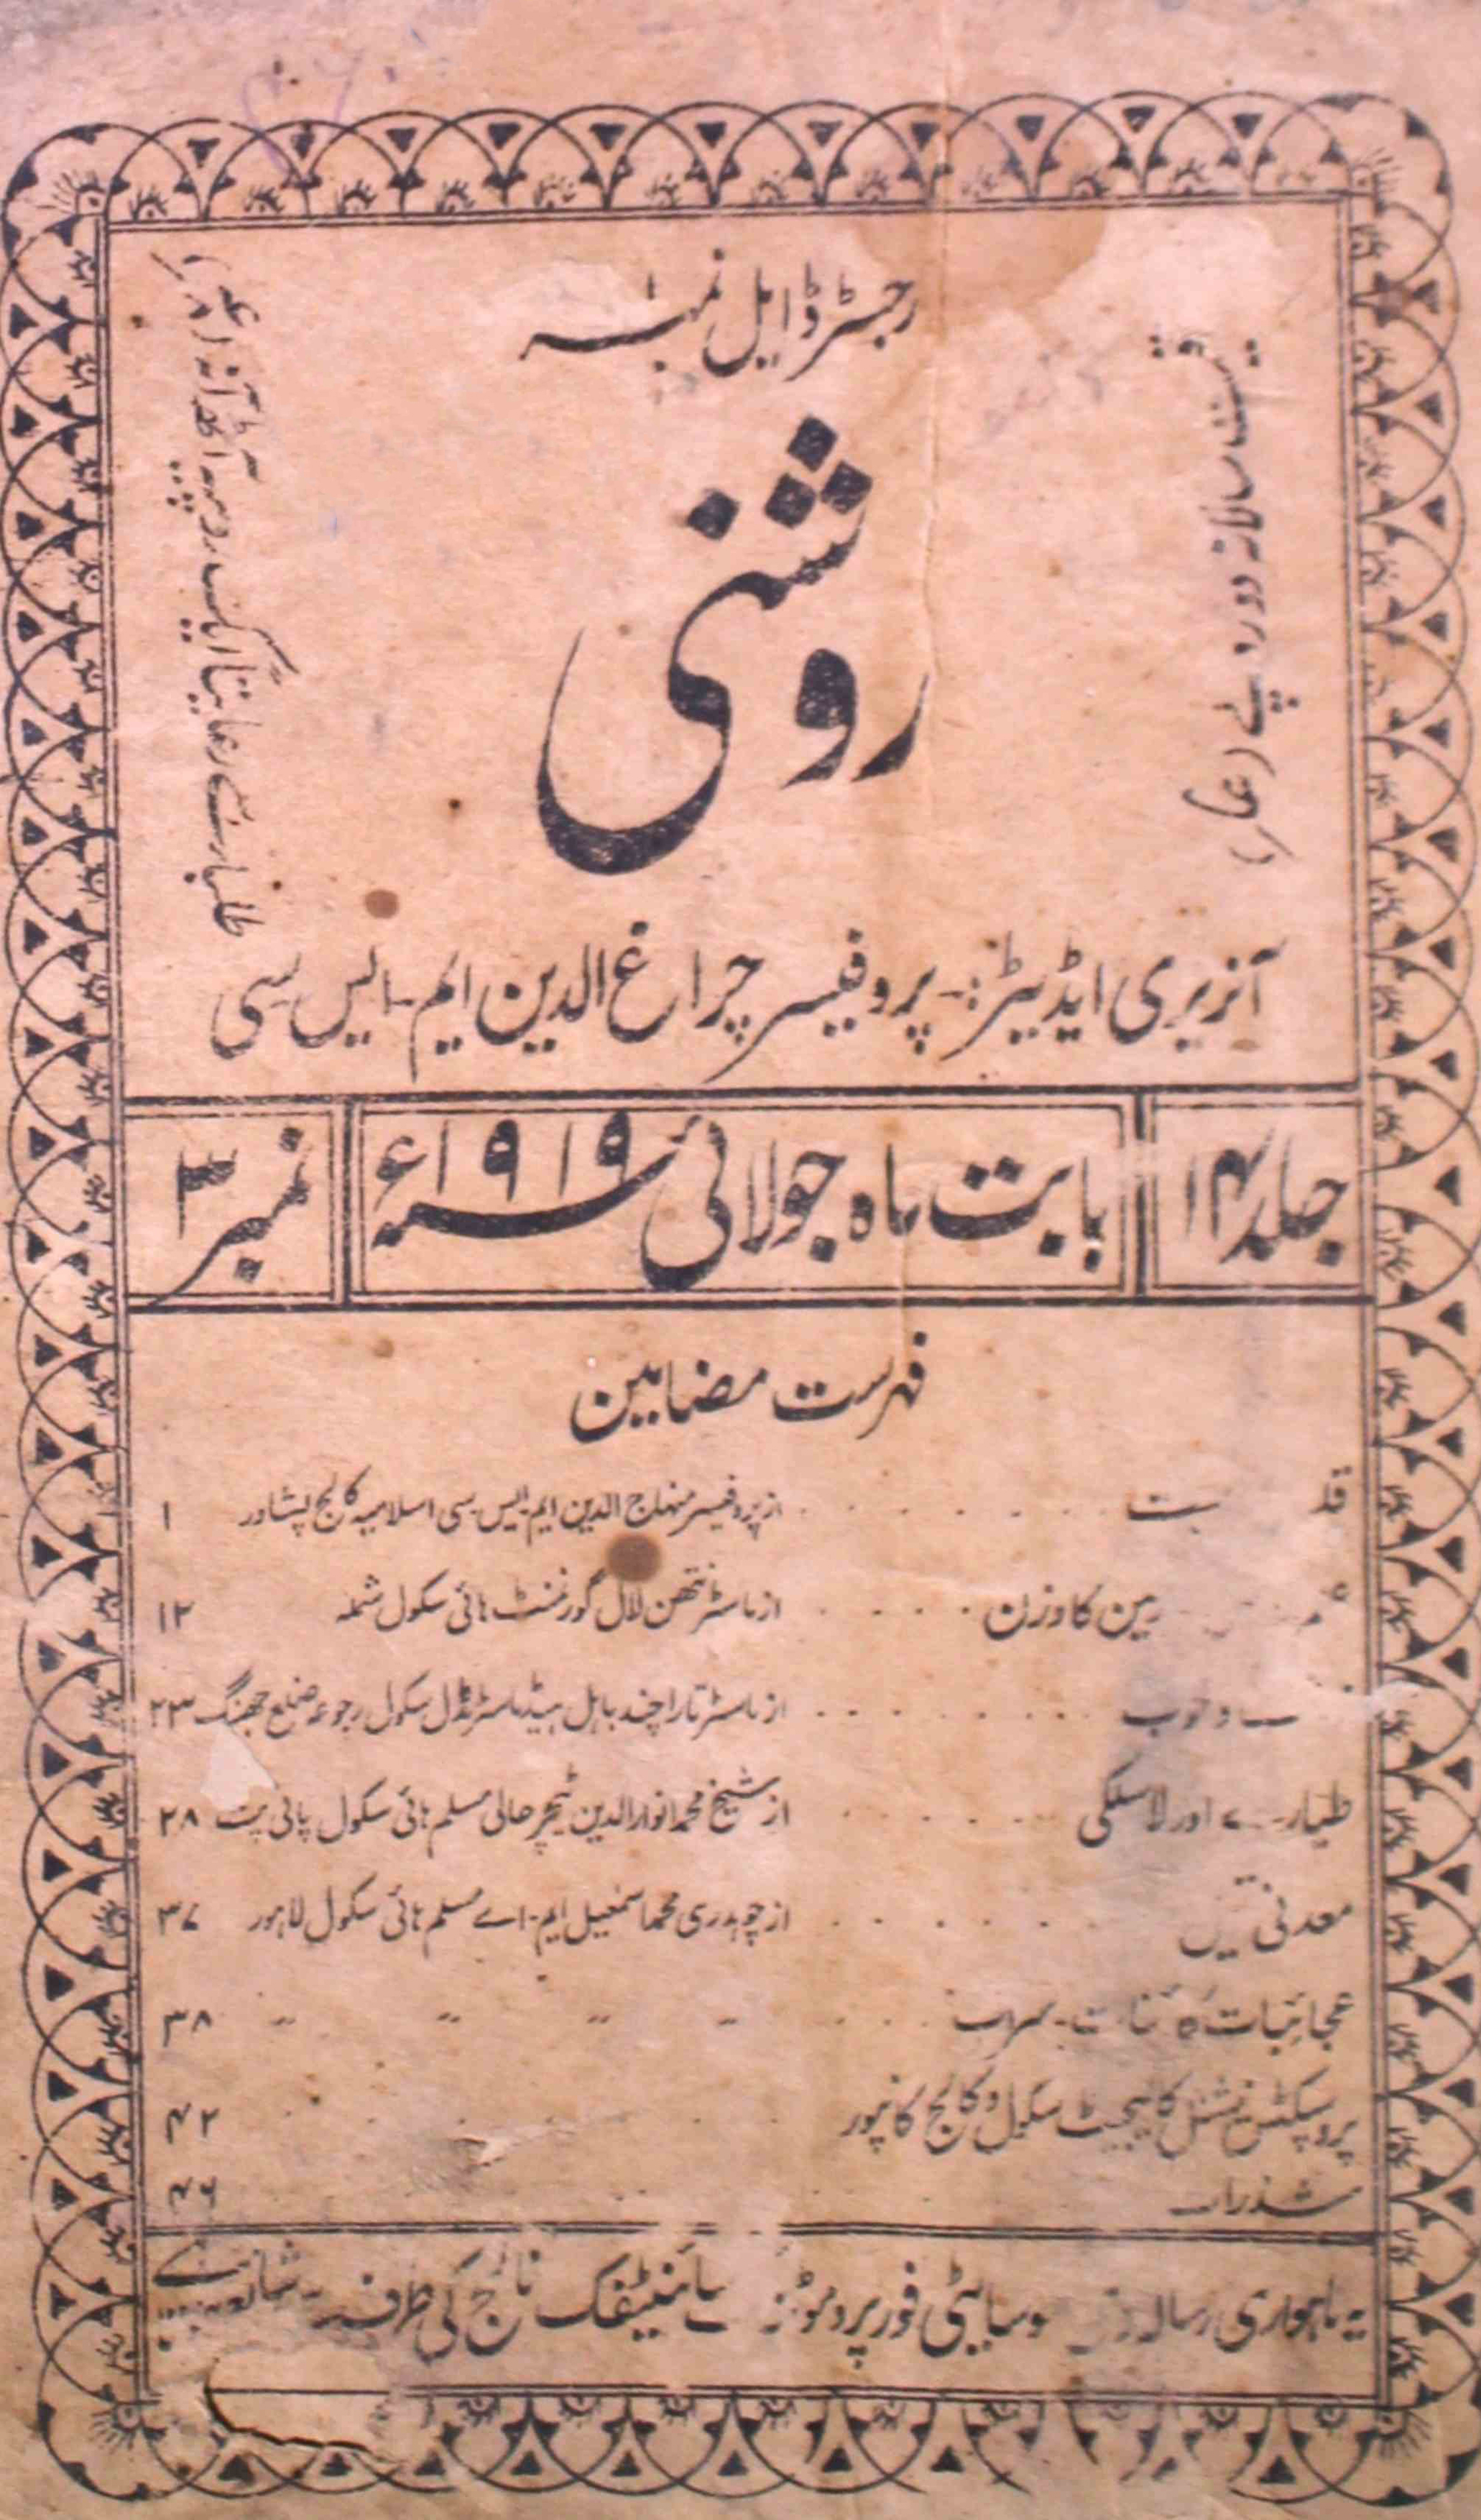 رجسٹرڈ ایل نمبر
قیمت سالانہ دو روپے
طلبا سے رعایتاً ایک روپیہ آٹھ آنہ
روشنی
آنریری ایڈیٹر:- پروفیسر چراغ الدین ایم-ایس سی
جلد ۱۴
بابت ماہ جولائی سنہ ۱۹۱۹ء
نمبر ۳
فہرست مضامین
از پروفیسر منہاج الدین ایم-ایس-سی اسلامیہ کالج پشاور ۱
کا وزن . . . . از ماسٹر نتھن لال گورنمنٹ ہائی سکول شملہ ۱۲
. . . . از ماسٹر تارا چند باہل ہیڈ ماسٹر مڈل سکول رجوعہ ضلع جھنگ ۲۳
طیارے اور لاسلکی . . . . از شیخ محمد انوار الدین ٹیچر حالی مسلم ہائی سکول پانی پت ۲۸
معدنی . . . . از چوہدری محمد اسمٰعیل ایم-اے مسلم ہائی سکول لاہور ۳۷
عجائبات . . . . ,, ,, ,, ,, ۳۸
پراسپکٹس نیشنل کالجیٹ سکول و کالج کانپور . . . . ۴۲
شذرات . . . . ۴۶
یہ ماہواری رسالہ سوسائٹی فور پروموٹنگ سائنٹیفک نالج کی طرف سے شائع